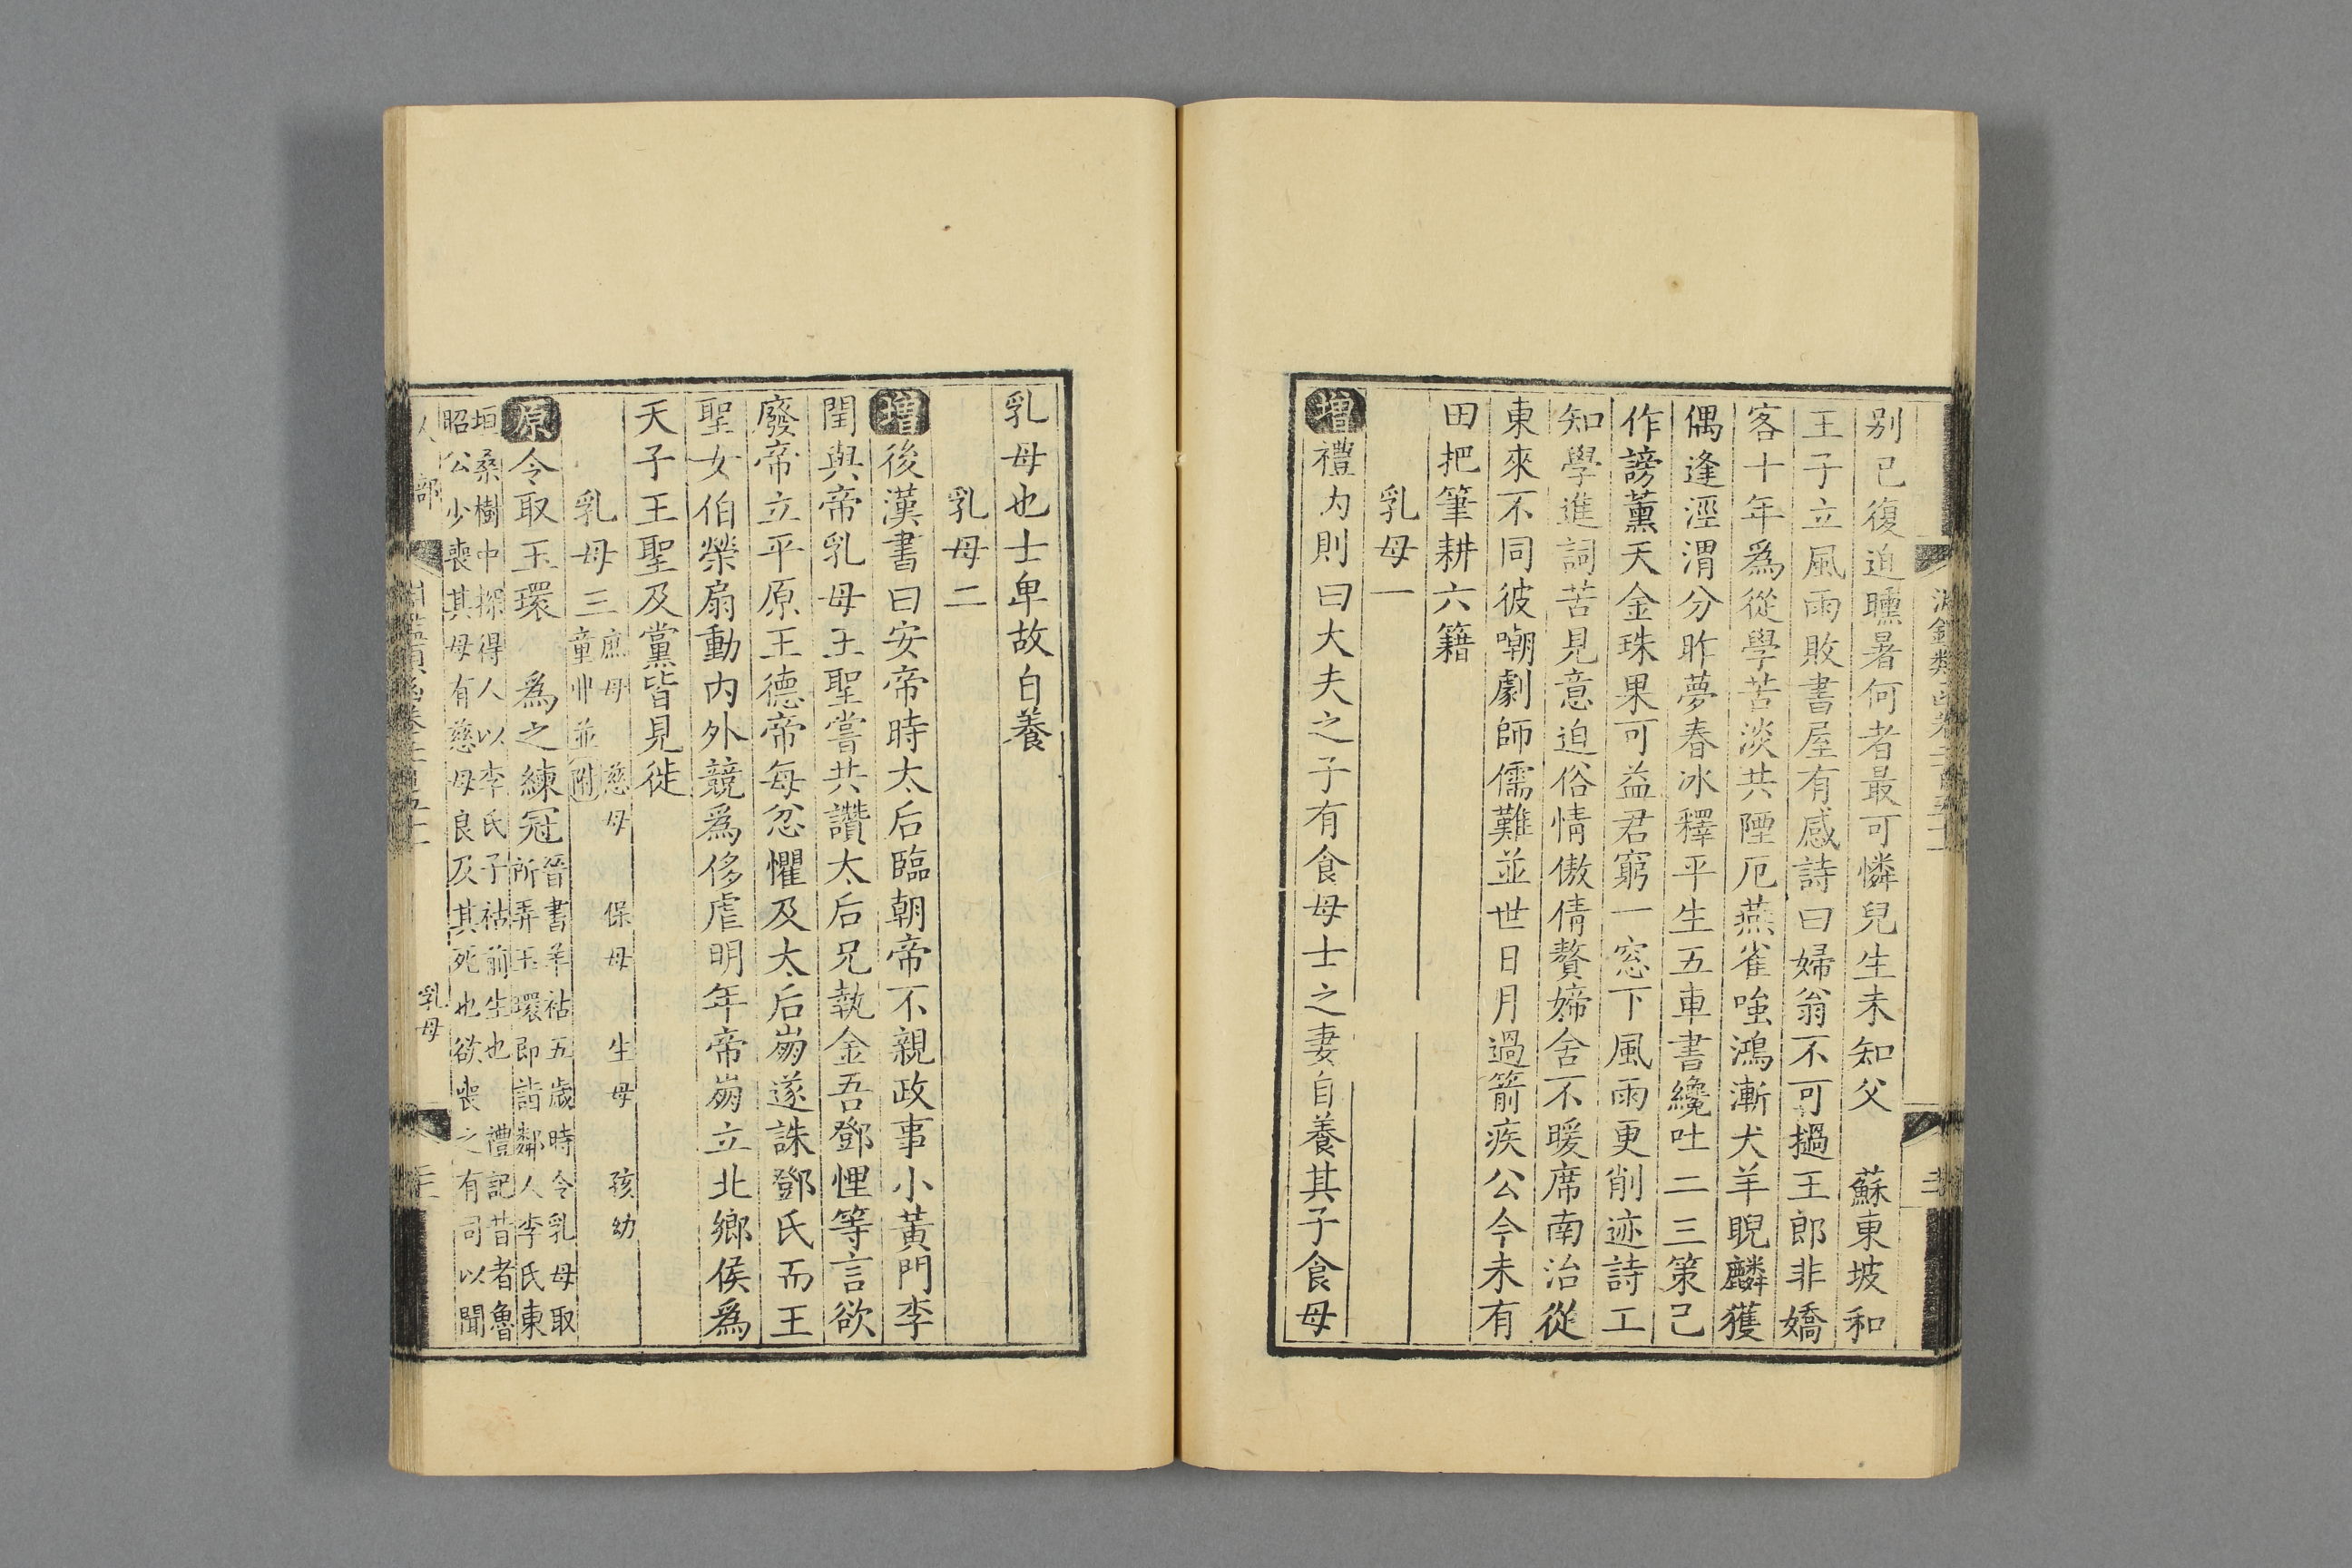 别已復迫曛暑何者最可憐兒生未知父　蘇東坡和
王子立風雨敗書屋有感詩曰婦翁不可撾王郎非嬌
客十年爲從學苦淡共陻厄燕雀嗤鴻漸犬羊睨麟獲
偶逢涇渭分昨夢春冰釋平生五車書纔吐二三策已
作謗薰天金珠果可益君窮一窓下風雨更削迹詩工
知學進詞苦見意迫俗情傲倩贅婦舍不暖席南治從
東來不同彼嘲劇師儒難並世日月過箭疾公今未有
田把筆耕六籍
乳母一
增禮內則曰大夫之子有食母士之妻自養其子食母
乳母也士卑故自養
乳母二
增後漢書曰安帝時太后臨朝帝不親政事小黃門李
閏與帝乳母王聖嘗共讚太后兄執金吾鄧悝等言欲
廢帝立平原王德帝每忿懼及太后崩遂誅鄧氏而王
聖女伯榮扇動內外競爲侈虐明年帝崩立北鄉侯爲
天子王聖及黨皆見徙
乳母三　庶母　慈母　保母　生母　孩幼
童丱並附
原令取玉環　爲之練冠
晉書羊祜五歲時令乳母取
所弄玉環卽詣鄰人李氏東
垣桑樹中探得人以李氏子祜前生也　禮記昔者魯
昭公少喪其母有慈母良及其死也欲喪之有司以聞
人部
乳母